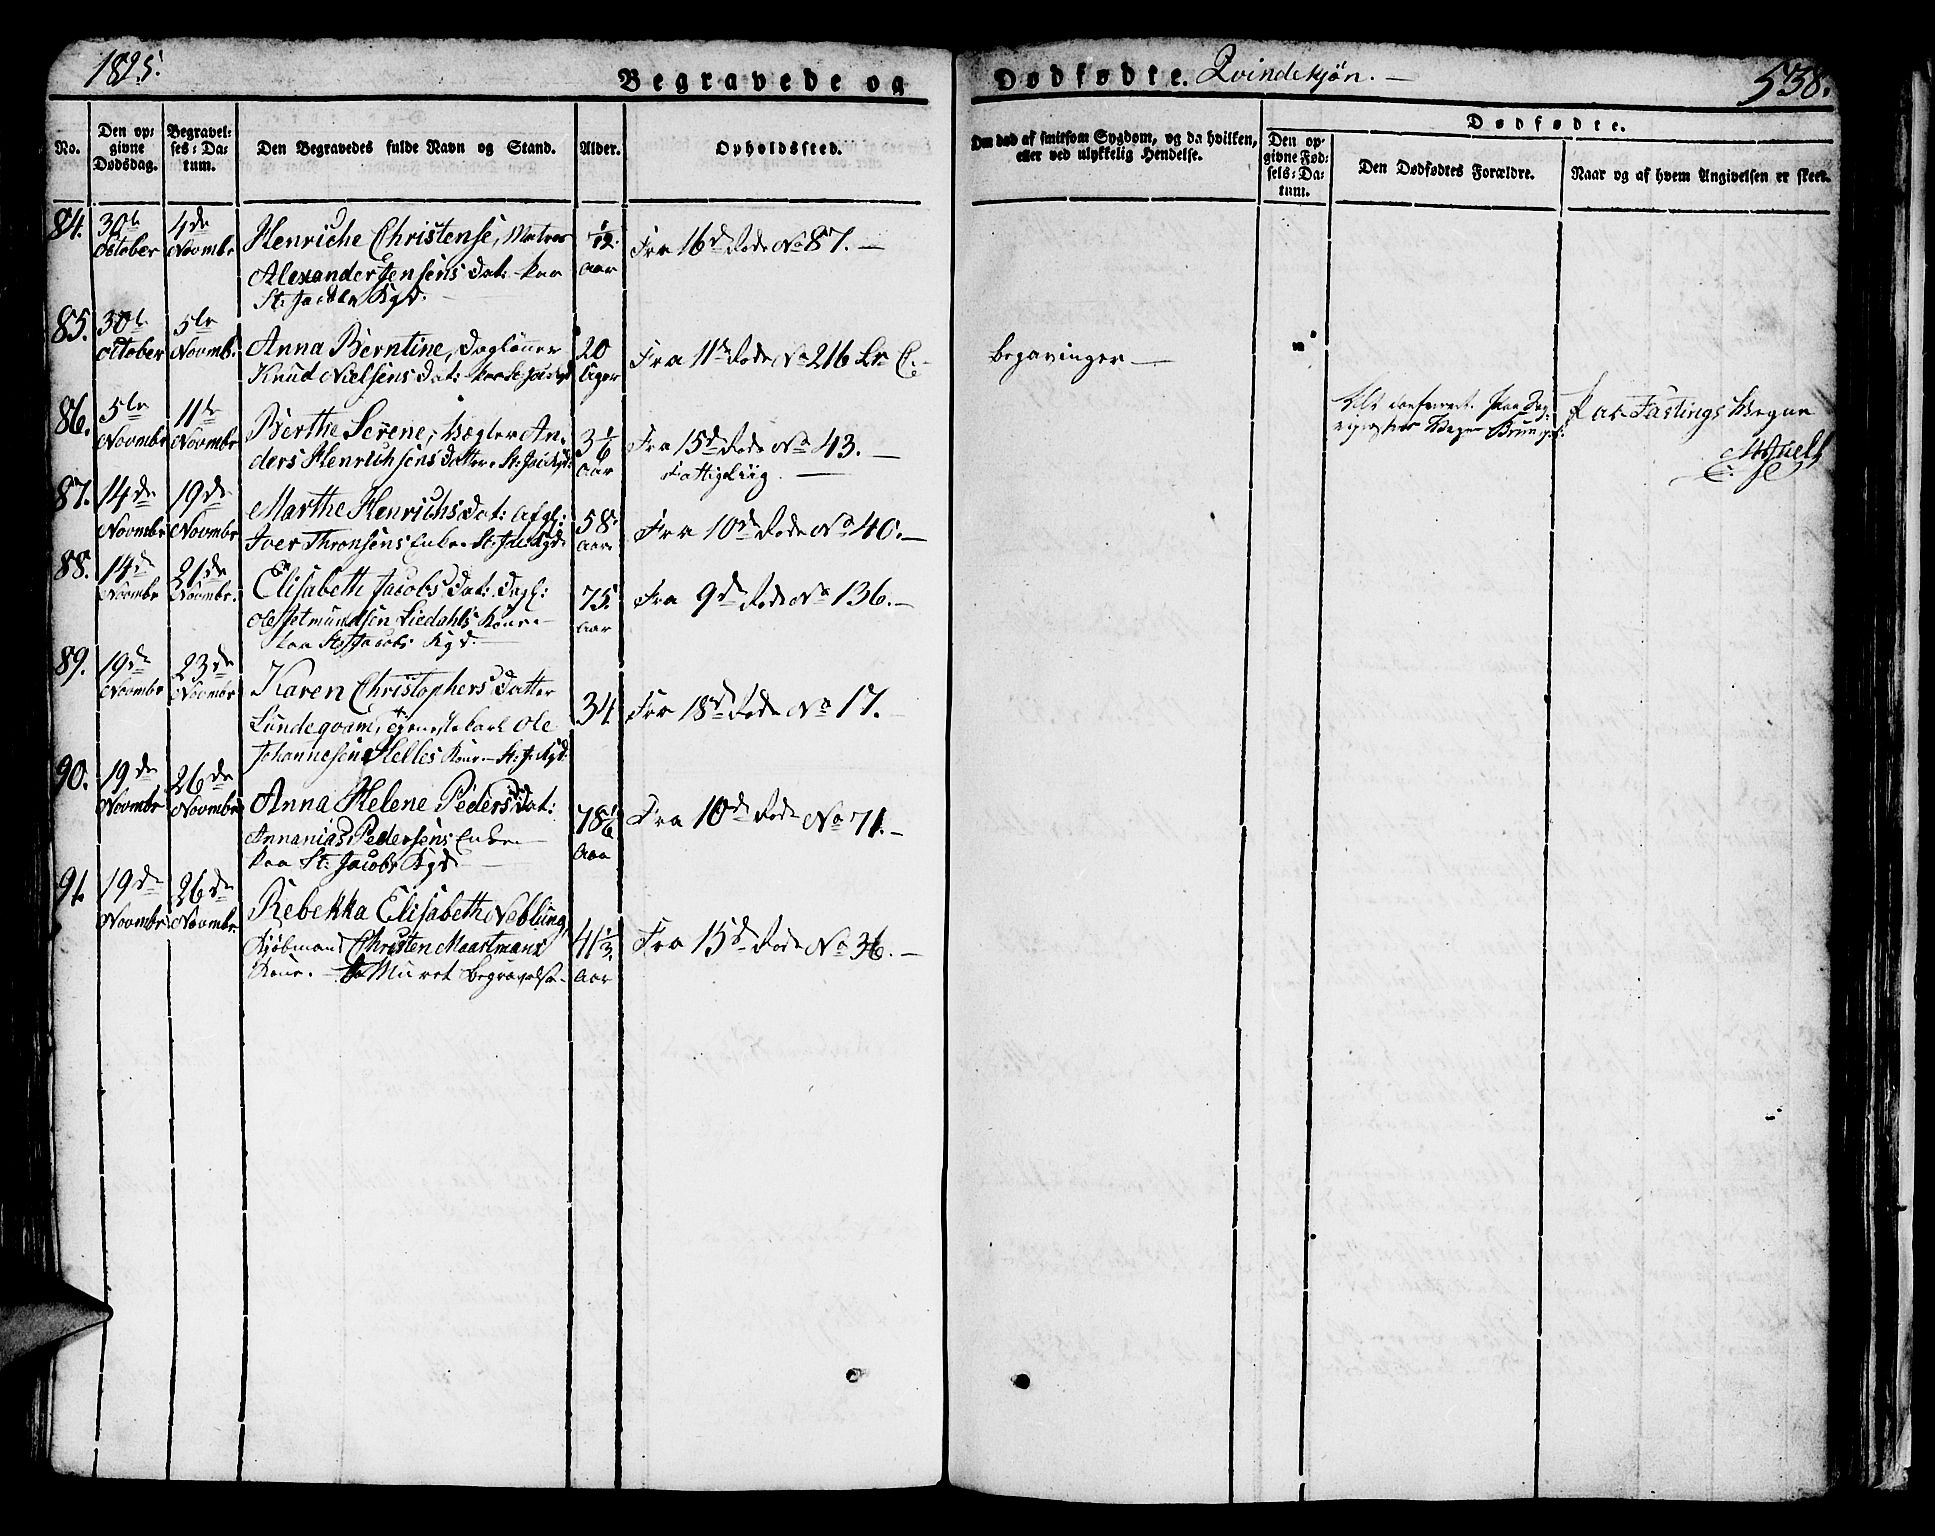 1825.
Begravede og Dødfødte. Qvindekjøn. —
538.
No.
Den op=
givne
Dødsdag.
Begravel=
ses=Da=
tum.
Den Begravedes fulde Navn og Stand.
Alder.
Opholdssted.
Om død af smitsom Sygdom, og da hvilken,
eller ved ulykkelig Hendelse.
Dødfødte.
Den op=
givne Fød=
sels=Da=
tum.
Den Dødfødtes Forældre.
Naar og af hvem Angivelsen er skeet.
84. 30te October 4de Novmbr
Henriche Christense, Matros
Alexander Jensens Dat: paa
St: Jacobs Kgd.
1/12 Aar
Fra 16de Rode No 87. —
85. 30te October 5te Novmbr.
Anna Berntine, Daglønner
Knud Nielsens Dat: paa St: Jac: Kgd
20 Uger
Fra 11te Rode No 216 Lr. C. —
Begavinger —
86. 5te Novmbr 11te Novmbr
Berthe Serene, Vægter An=
ders Henrichsens Datter. St: Jac: Kgd:
3 1/6 Aar
Fra 15de Rode No 43. —
Fattigliig. —
Fastings Vegne
87. 14de Novmbr 19de Novmbr
Marthe Henrichs Dat: Afgl:
Iver Thronsens Enke. St: Jac: Kgd.
58 Aar.
Fra 10de Rode No 40. —
88. 14de Novmbr 21de Novmbr.
Elisabeth Jacobs Dat: Dagl:
Ole Setmundsen Liedahls Kone —
paa St: Jacobs Kgd. —
75 Aar
Fra 9de Rode No 136. —
89. 19de Novmbr 23de Novmbr
Karen Christophers Datter
Lundeqvam, Tjenestekarl Ole
Johannesen Helles Kone — St. J. Kgd.
34.
Fra 18de Rode No 17. —
90. 19de Novmbr 26de Novmbr
Anna Helene Peders Dat:
Annanias Pedersens Enke —
paa St: Jacobs Kgd —
78 1/6 Aar
Fra 10de Rode No 71. —
91. 19de Novmbr 26de Novmbr.
Rebekka Elisabeth Neblung,
Kjøbmand Christen Maartmans
Kone. — Muret Begravelse —
41 1/3. Aar
Fra 15de Rode No 36. —